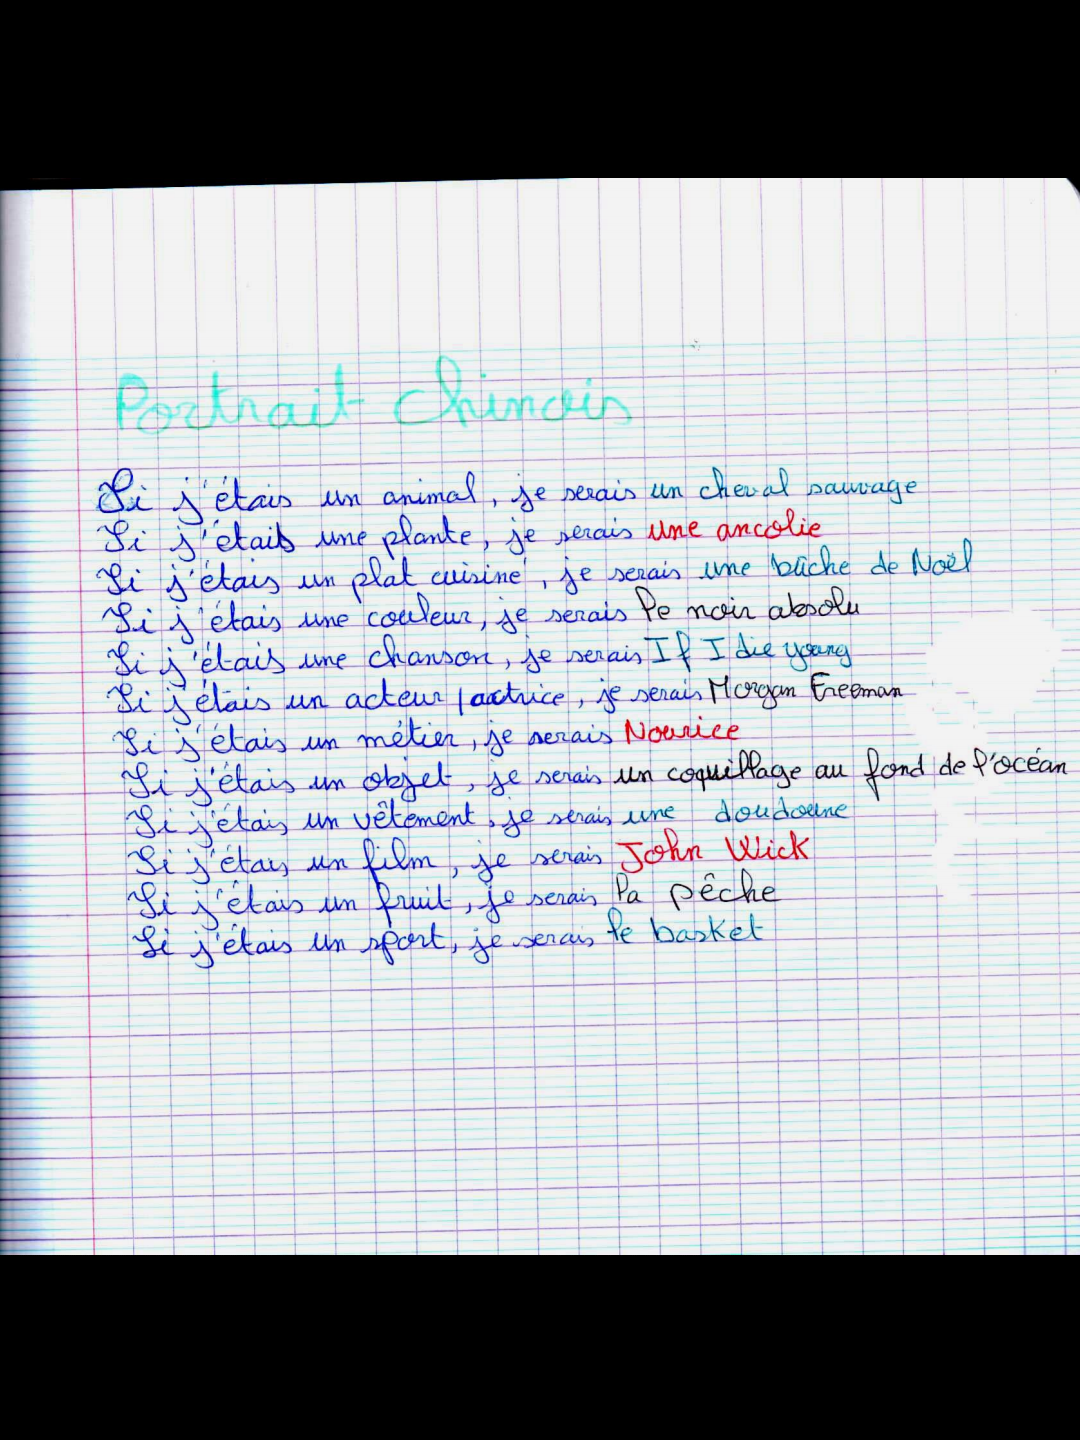 Portrait chinois
Si j'étais un animal, je serais un cheval sauvage
Si j'étais une plante, je serais une ancolie
Si j'étais un plat cuisiné, je serais une bûche de Noël
Si j'étais une couleur, je serais le noir absolu
Si j'étais une chanson, je serais If I die young
Si j'étais un acteur / actrice, je serais Morgan Freeman
Si j'étais un métier, je serais Nourice
Si j'étais un objet, je serais un coquillage au fond de l'océan
Si j'étais un vêtement, je serais une doudoune
Si j'étais un film, je serais John Wick
Si j'étais un fruit, je serais la pêche
Si j'étais un sport, je serais le basket